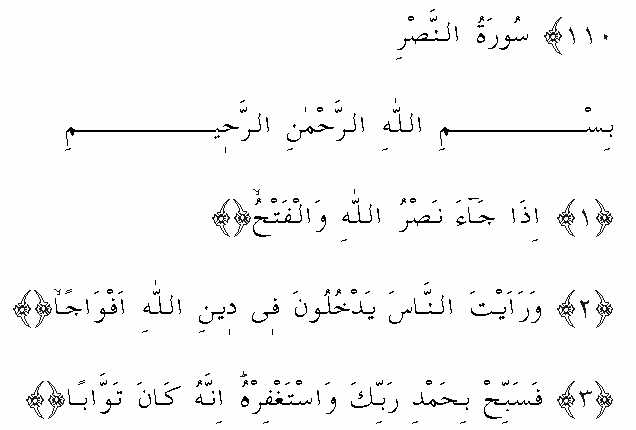 ١١٠﴾ سُورَةُ النَّصْرِ
بِسْمِ اللّٰهِ الرَّحْمٰنِ الرَّح۪يمِ
﴿١﴾ اِذَا جَٓاءَ نَصْرُ اللّٰهِ وَالْفَتْحُۙ﴿﴾
﴿٢﴾ وَرَاَيْتَ النَّاسَ يَدْخُلُونَ ف۪ى د۪ينِ اللّٰهِ اَفْوَاجًاۙ﴿﴾
﴿٣﴾ فَسَبِّحْ بِحَمْدِ رَبِّكَ وَاسْتَغْفِرْهُۜ اِنَّهُ كَانَ تَوَّابًا﴿﴾